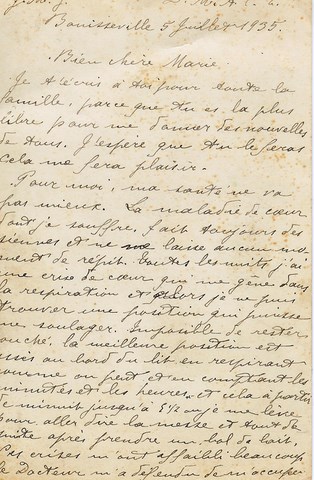 J. M. J.
Bouisseville 5 Juillet 1935.
Bien chère Marie.
Je t'écris à toi pour toute la
famille, parce que tu es la plus
libre pour me donner des nouvelles
de tous. J'espère que tu le feras
cela me fera plaisir.
Pour moi, ma santé ne va
pas mieux. La maladie de cœur
dont je souffre, fait toujours des
siennes et ne me laisse aucun mo
ment de répit. Toutes les nuits j'ai
une crise de cœur qui me gêne dans
la respiration et alors je ne puis
trouver une position qui puisse
me soulager. Impossible de rester
couché, la meilleure position est
assis au bord du lit en respirant
comme on peut et en comptant les
minutes et les heures. et cela à partir
de minuit jusqu'à 5½ où je me lève
pour aller dire la messe et tout de
suite après prendre un bol de lait.
Ces crises m'ont affaibli beaucoup
le Docteur m'a défendu de m'occuper